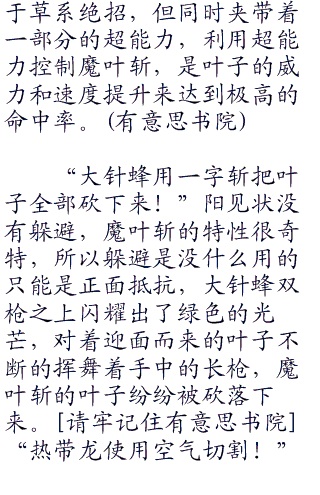 于草系绝招，但同时夹带着
一部分的超能力，利用超能
力控制魔叶斩，是叶子的威
力和速度提升来达到极高的
命中率。(有意思书院)
“大针蜂用一字斩把叶
子全部砍下来！”阳见状没
有躲避，魔叶斩的特性很奇
特，所以躲避是没什么用的
只能是正面抵抗，大针蜂双
枪之上闪耀出了绿色的光
芒，对着迎面而来的叶子不
断的挥舞着手中的长枪，魔
叶斩的叶子纷纷被砍落下
来。[请牢记住有意思书院]
“热带龙使用空气切割！”